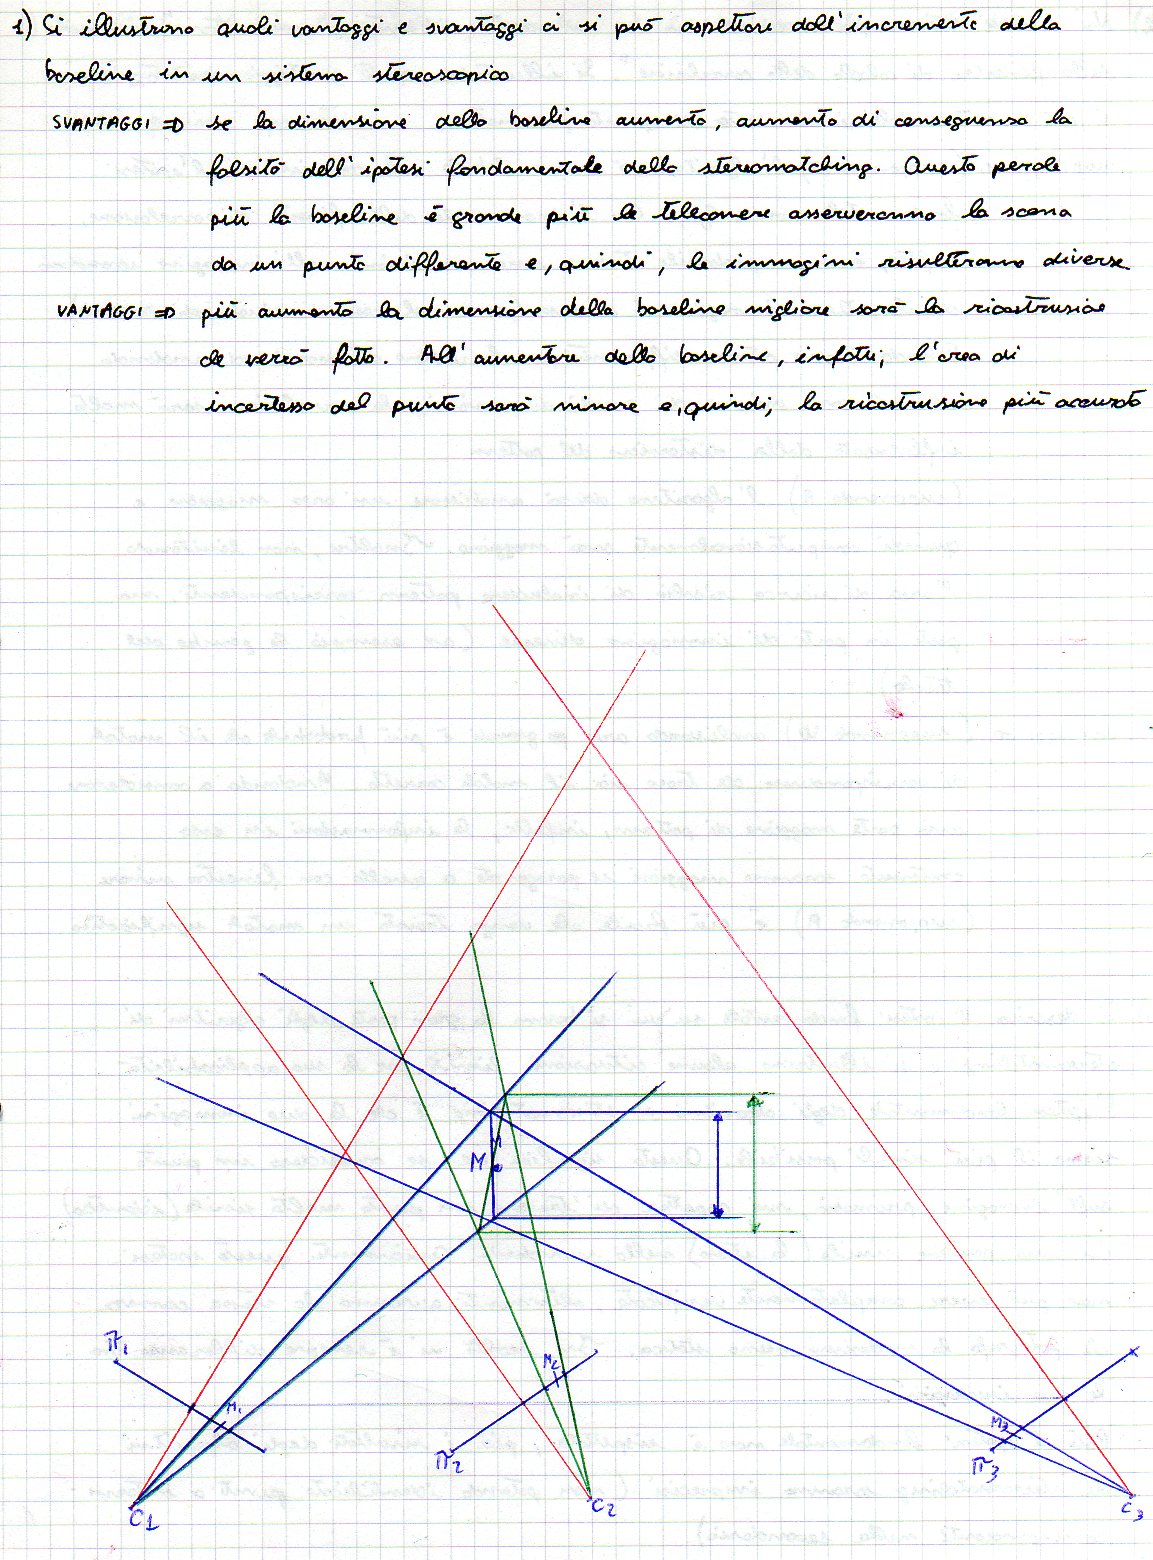 1) Si illustrino quali vantaggi e svantaggi ci si può aspettare dall'incremento della
baseline in un sistema stereoscopico
SVANTAGGI => se la dimensione della baseline aumenta, aumenta di conseguenza la
falsità dell'ipotesi fondamentale dello stereomatching. Questo perche
più la baseline è grande più le telecamere osserveranno la scena
da un punto differente e, quindi, le immagini risulteranno diverse.
VANTAGGI => più aumenta la dimensione della baseline migliore sarà la ricostruzione
che verrà fatta. All'aumentare della baseline, infatti, l'area di
incertezza del punto sarà minore e, quindi, la ricostruzione più accurata
M
π1
M1
M2
π2
M3
π3
C1
C2
C3